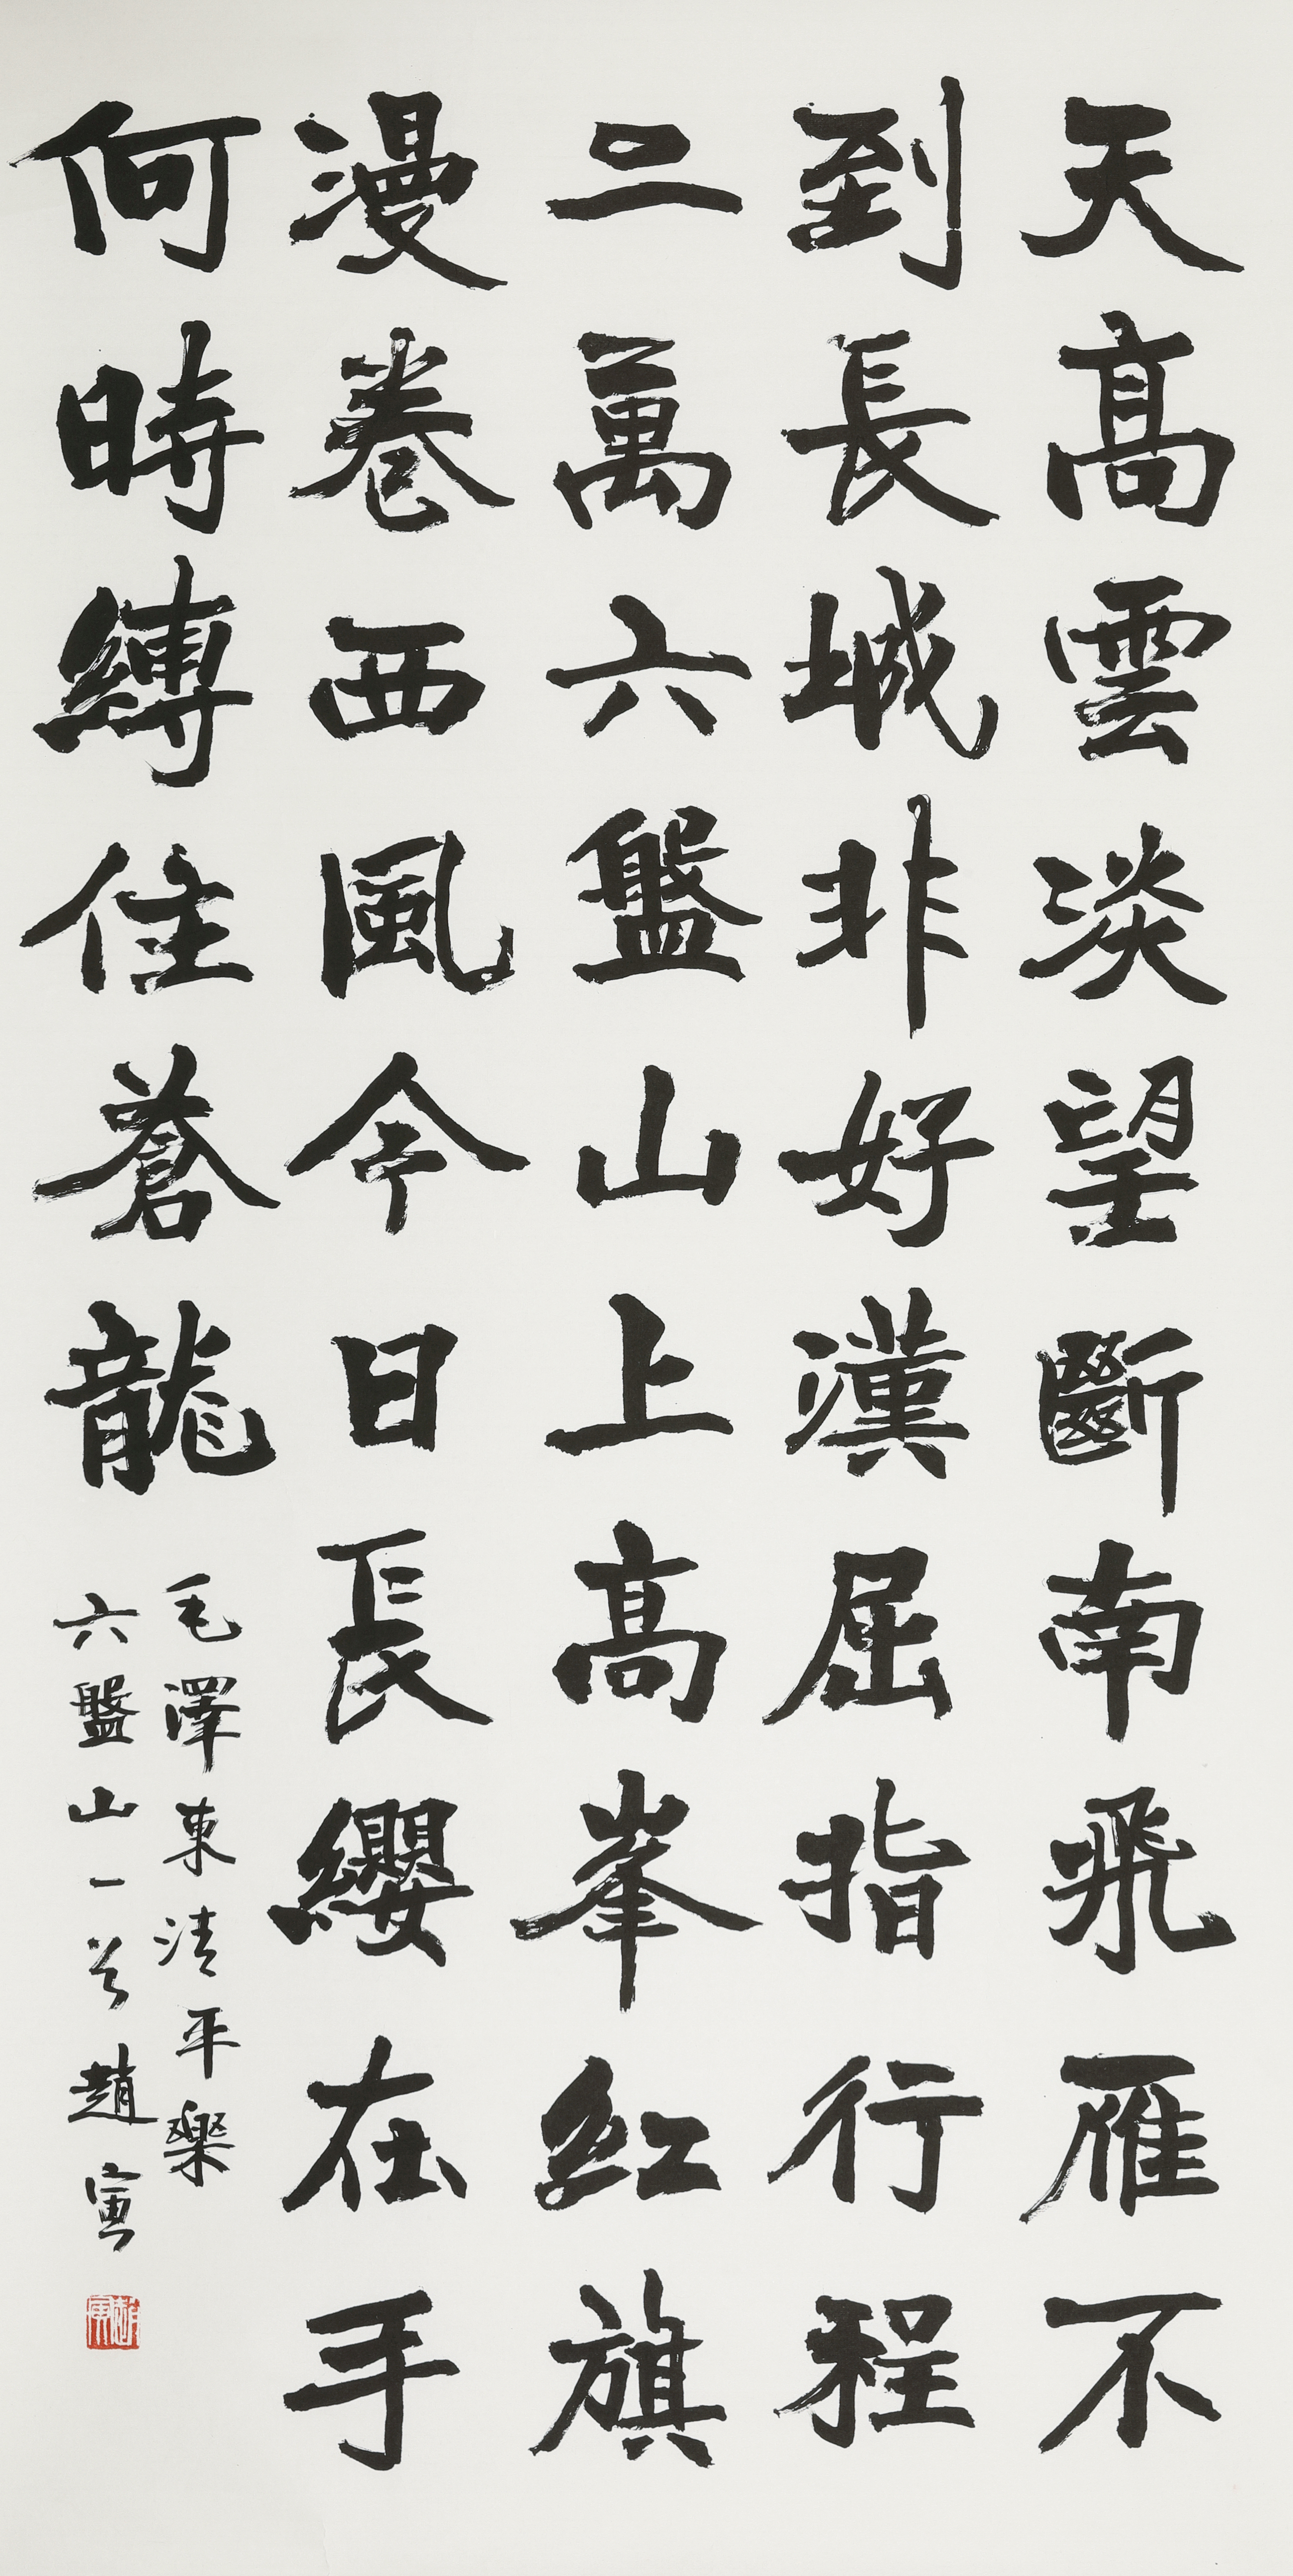 天高雲淡望斷南飛雁不
到長城非好漢屈指行程
二萬六盤山上高峯紅旗
漫卷西風今日長纓在手
何時縛住蒼龍
毛澤東清平樂
六盤山一首趙寅
趙寅